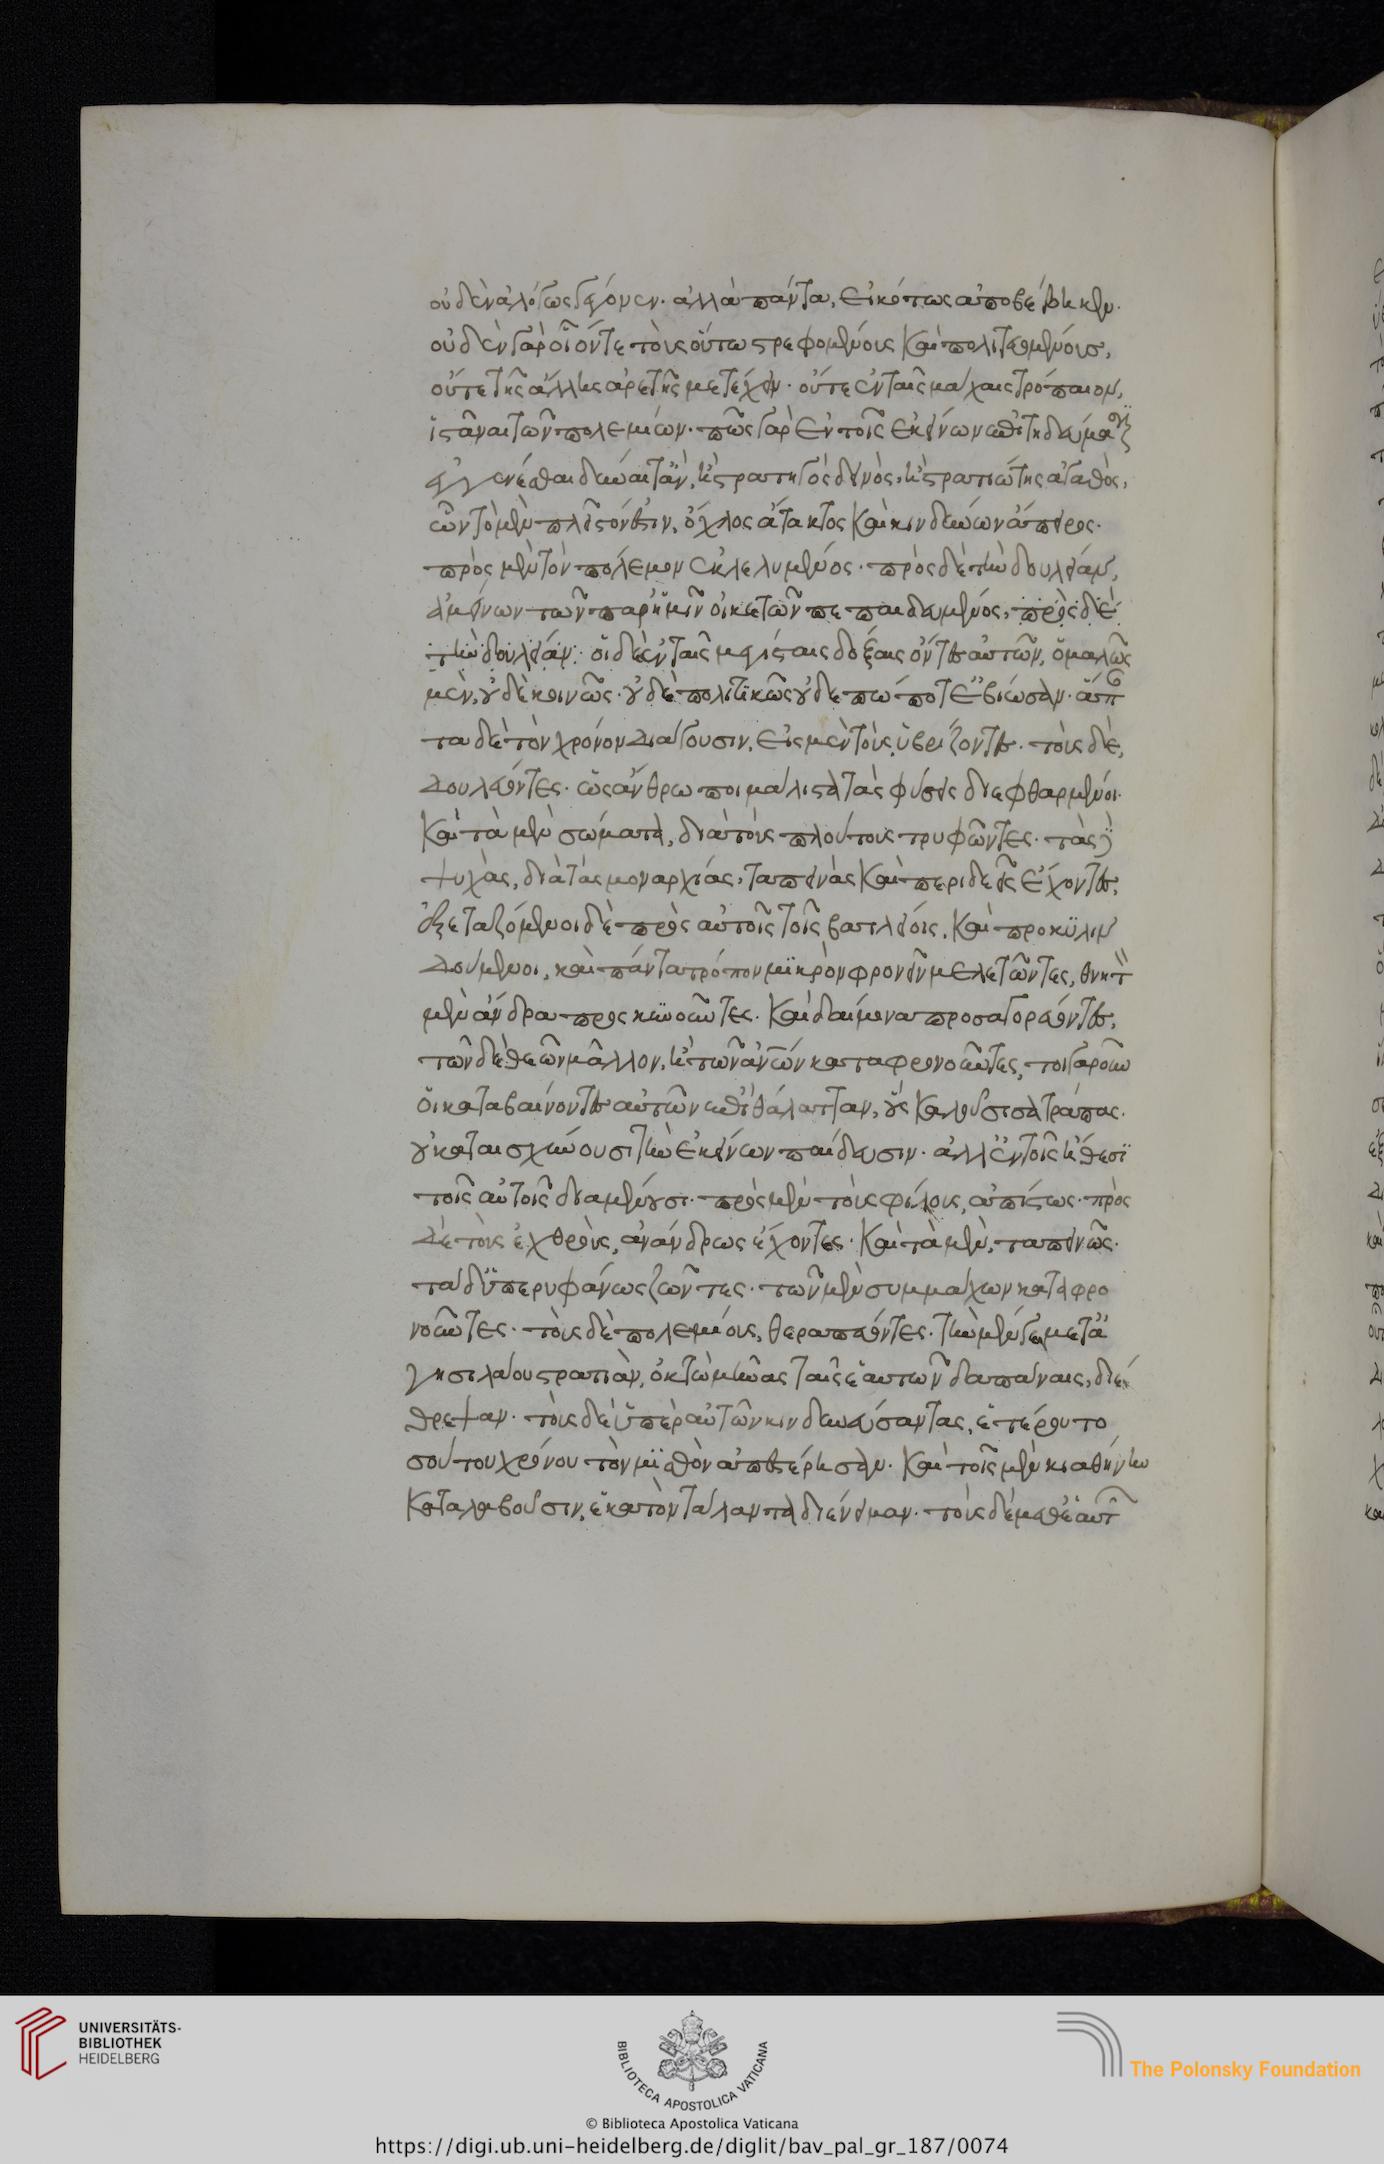 οὐδὲν ἀλόγως γέγονεν. ἀλλὰ πάντα, εἰκότως ἀποβέβηκεν.
οὐδὲν γὰρ οἷόντε τοὺς οὕτω τρεφομένους καὶ πολιτευομένους,
οὔτε τῆς ἄλλης ἀρετῆς μετέχειν. οὔτε ἐν ταῖς μάχαις τρόπαιον,
ἱστάναι τῶν πολεμίων. πῶς γὰρ ἐν τοῖς ἐκείνων ἐπιτηδεύμασιν
ἐγγενέσθαι δύναιτ' ἂν, ἢ στρατηγὸς δεινὸς, ἢ στρατιώτης ἀγαθὸς,
ὧν τὸ μὲν πλεῖστόν ἐστιν, ὄχλος ἄτακτος καὶ κινδύνων ἄπειρος.
πρὸς μὲν τὸν πόλεμον ἐκλελυμένος. πρὸς δὲ τὴν δουλείαν,
ἀμείνων τῶν παρ' ἡμῖν οἰκετῶν πεπαιδευμένος, πρὸς δὲ
τὴν δουλείαν. οἱ δὲ ἐν ταῖς μεγίσταις δόξαις ὄντες αὐτῶν, ὁμαλῶς
μὲν, οὐδὲ κοινῶς. οὐδὲ πολιτικῶς οὐδεπώποτε ἐβίωσαν. ἅπαν
τα δὲ τὸν χρόνον διάγουσιν, εἰς μὲν τοὺς ὑβρίζοντες. τοῖς δὲ,
δουλεύοντες. ὡς ἄνθρωποι μάλιστα τὰς φύσεις διεφθαρμένοι.
καὶ τὰ μὲν σώματα, διὰ τοὺς πλούτους τρυφῶντες. τὰς δὲ
ψυχὰς, διὰ τὰς μοναρχίας, ταπεινὰς καὶ περιδεεῖς ἔχοντες,
ἐξεταζόμενοι δὲ πρὸς αὐτοῖς τοῖς βασιλείοις, καὶ προκυλιν
δούμενοι, καὶ πάντα τρόπον μικρὸν φρονεῖν μελετῶντες, θνητὸν
μὲν ἄνδρα προσκυνοῦντες. καὶ δαίμονα προσαγορεύοντες,
τῶν δὲ θεῶν μᾶλλον, ἢ τῶν ἀνῶν καταφρονοῦντες, τοιγαροῦν
οἱ καταβαίνοντες αὐτῶν ἐπὶ θάλατταν, οὓς καλοῦσι σατράπας.
οὐ καταισχύνουσι τὴν ἐκείνων παίδευσιν. ἀλλ' ἐν τοῖς ἤθεσι
τοῖς αὐτοῖς διαμένουσι. πρὸς μὲν τοὺς φίλους, ἀπίστως. πρὸς
δὲ τοὺς ἐχθροὺς, ἀνάνδρως ἔχοντες. καὶ τὰ μὲν, ταπεινῶς.
τὰ δ' ὑπερηφάνως ζῶντες. τῶν μὲν συμμάχων καταφρο
νοῦντες. τοὺς δὲ πολεμίους, θεραπεύοντες. τὴν μέν γε μετ' ἀ
γησιλάου στρατιὰν, ὀκτὼ μῆνας ταῖς ἑαυτῶν δαπάναις, διέ
θρεψαν. τοὺς δὲ ὑπὲρ αὐτῶν κινδυνεύσαντας, ἑτέρου το
σούτου χρόνου τὸν μισθὸν ἀπεστέρησαν. καὶ τοῖς μὲν κισθήνην
καταλαβοῦσιν, ἑκατὸν τάλαντα διένειμαν. τοὺς δὲ μεθ' ἑαυτῶν
UNIVERSITÄTS-
BIBLIOTHEK
HEIDELBERG
BIBLIOTECA APOSTOLICA VATICANA
The Polonsky Foundation
© Biblioteca Apostolica Vaticana
https://digi.ub.uni-heidelberg.de/diglit/bav_pal_gr_187/0074